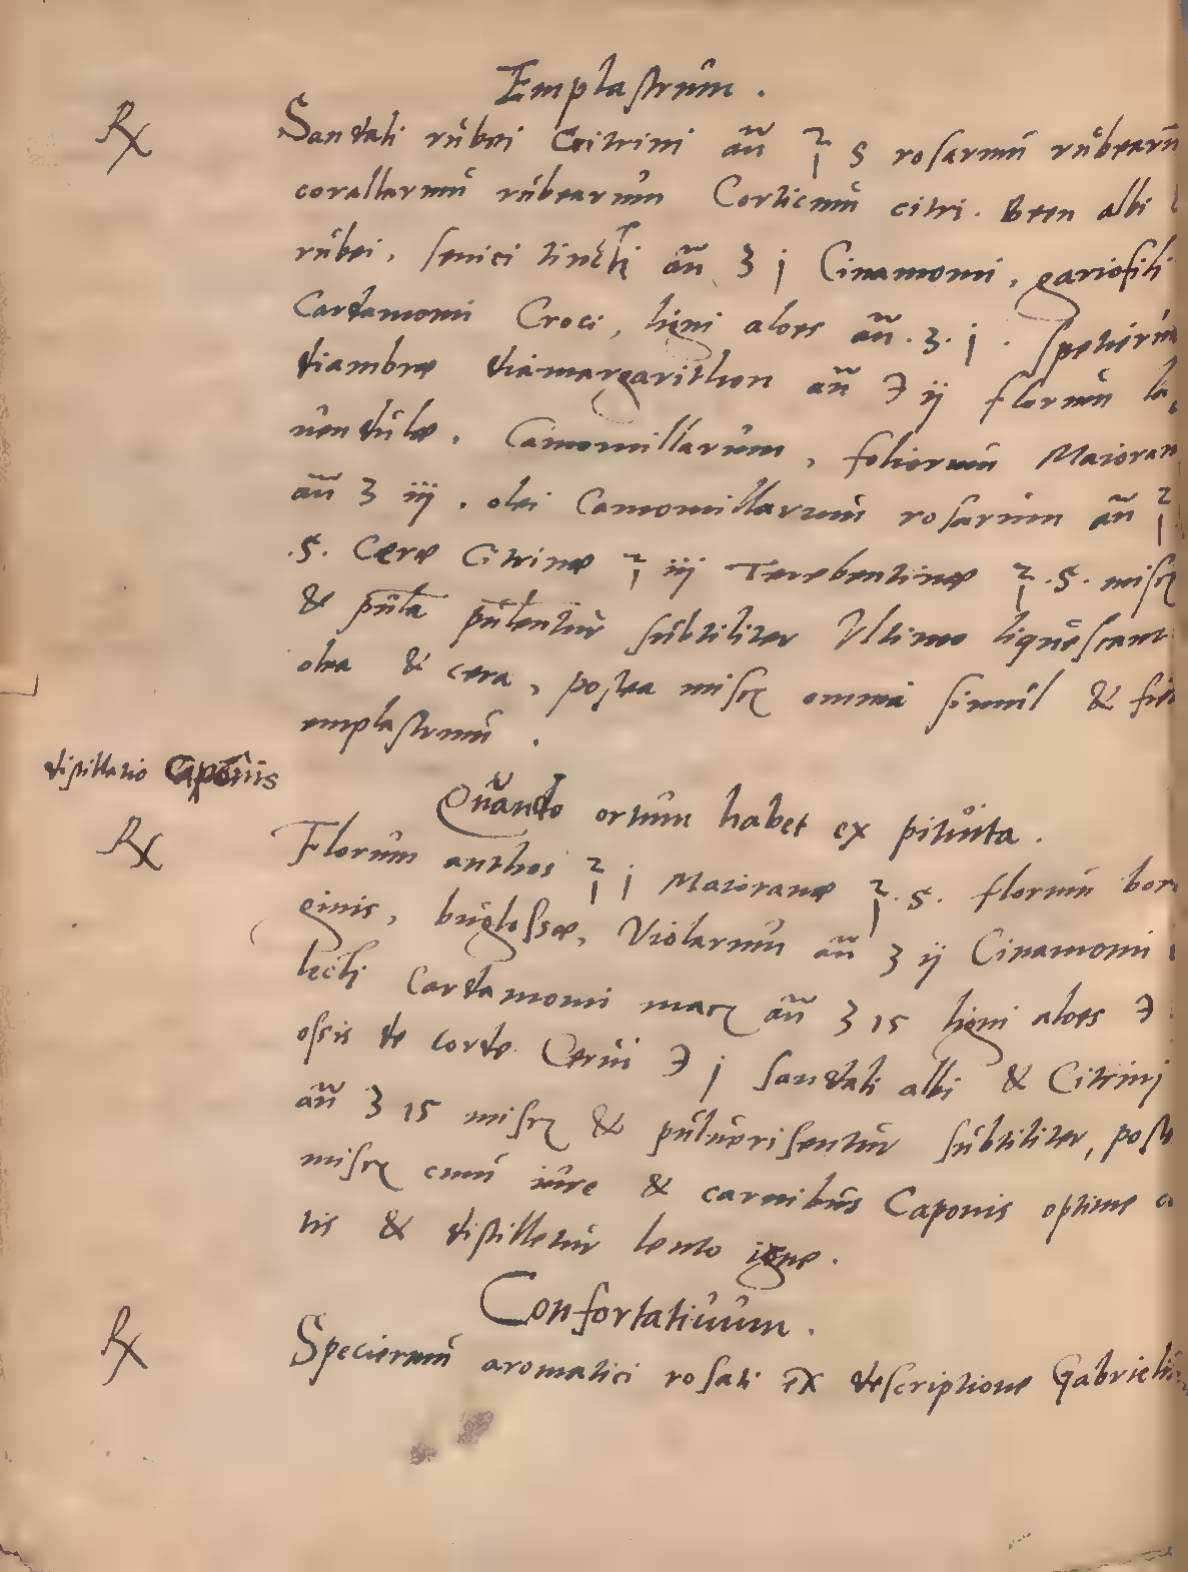 Emplastrum.
℞ Sandali rubei Citrini añ ℥ ß rosarum rubearum
corallarum rubearum Corticum citri. Been albi
rubei, senici tincti añ ʒ j Cinamomi, gariofili
Cardamomi Croci, ligni aloes añ. ʒ. j. spetierum
diambræ diamargarithon añ ℈ ij florum la,
uendulæ. Camomillarum, foliorum Maioran
añ ʒ iij. olei Camomillarum rosarum añ ℥
.ß. Ceræ Citrinæ ℥ iij Terebentinæ ℥.ß. misc
& pul̃a pul̃entur subtiliter Ultimo liquescant
olea & cera, postea misc omnia simul & fi
emplastrum.
distillatio Caponis
Quando ortum habet ex pituita.
℞ Florum anthos ℥ j Maioranæ ℥.ß. florum bor
ginis, buglossæ, Violarum añ ʒ ij Cinamomi
lecti Cardamomi mac añ ʒ iß ligni aloes ℈
ossis de corde Cerui ℈ j sandali albi & Citrinj
añ ʒ iß misc & puluerisentur subtiliter, post
misc cum iure & carnibus Caponis optime c
tis & distilletur lento igne.
Confortatiuum.
℞ Specierum aromatici rosati ex descriptione Gabrieli